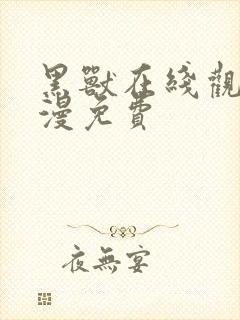 黑獸在綫觀
漫免費
夜無宴